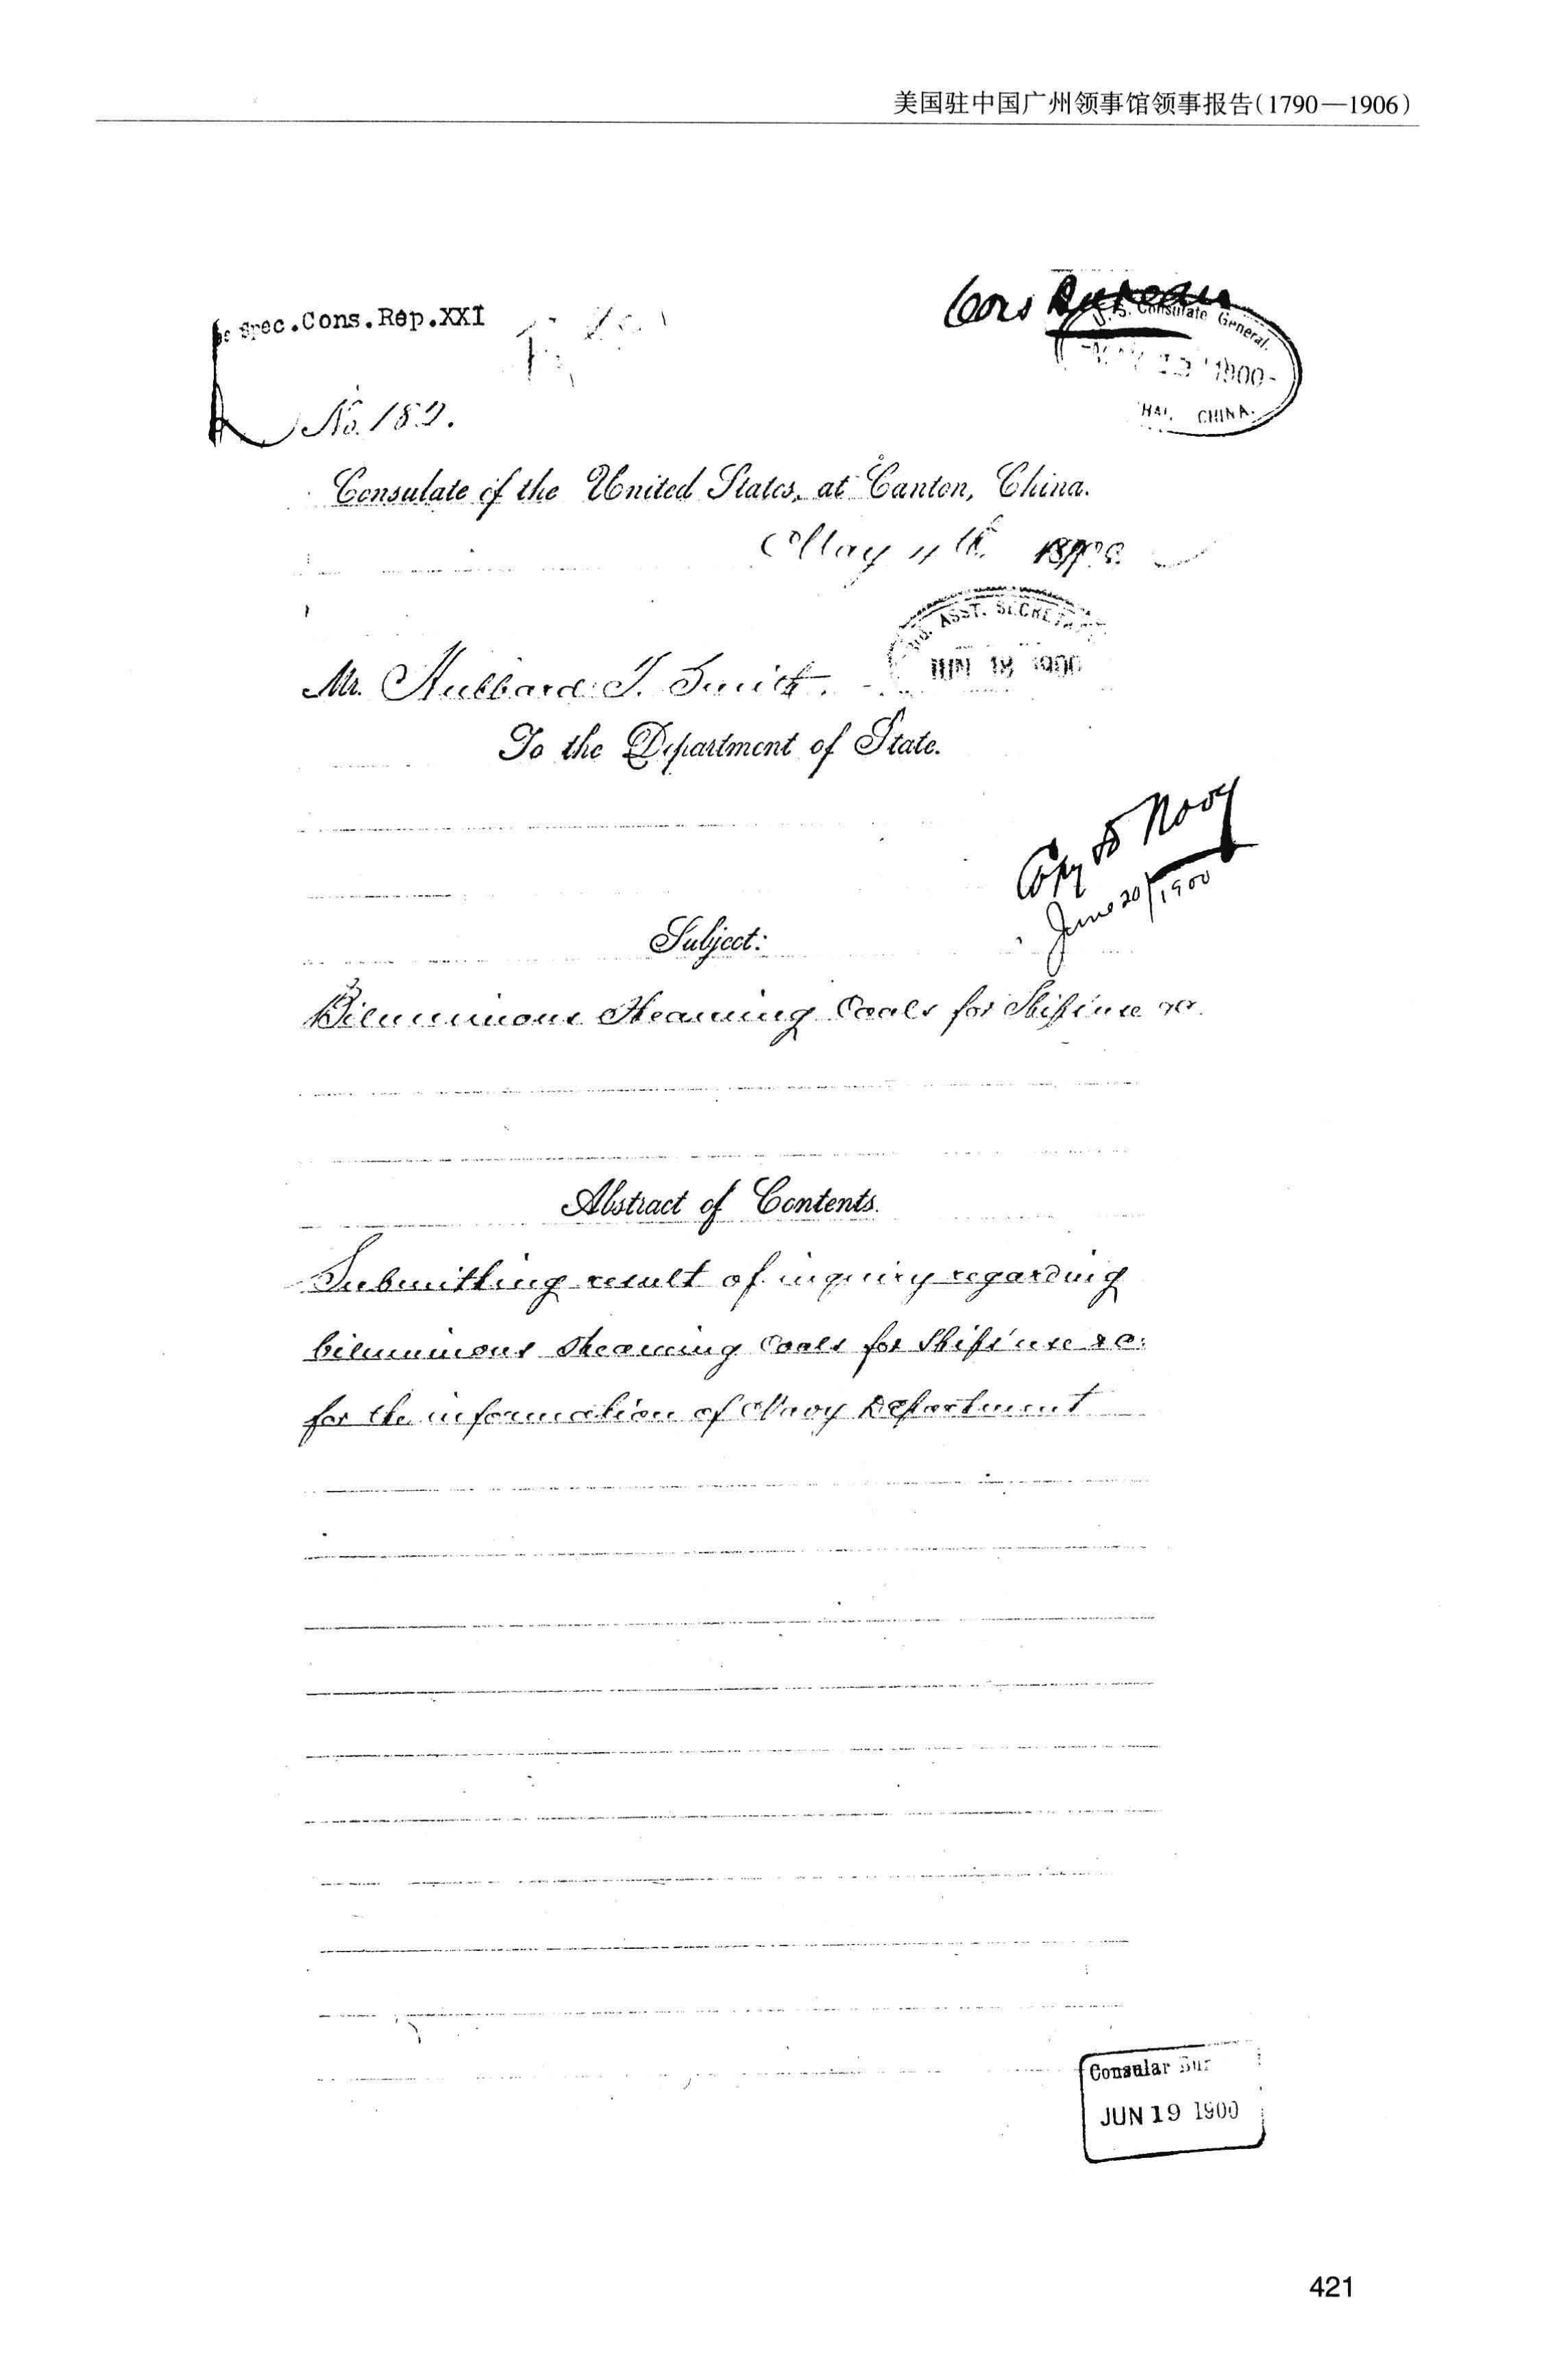 美国驻中国广州领事馆领事报告(1790—1906)
Spec.Cons.Rep.XXI
Cons Bureau
U.S. Consulate General.
1900
CHINA.
No. 182.
Consulate of the United States, at Canton, China.
May 11th. 1900.
ASST. SECRETA
JUN 18 1900
Mr. Hubbard T. Smith.
To the Department of State.
Copy to Navy
June 20/1900
Subject:
Bituminous Steaming Coals for Ships' use &c.
Abstract of Contents.
Submitting result of inquiry regarding
bituminous steaming Coals for Ships' use &c:
for the information of Navy Department
Consular Bur
JUN 19 1900
421